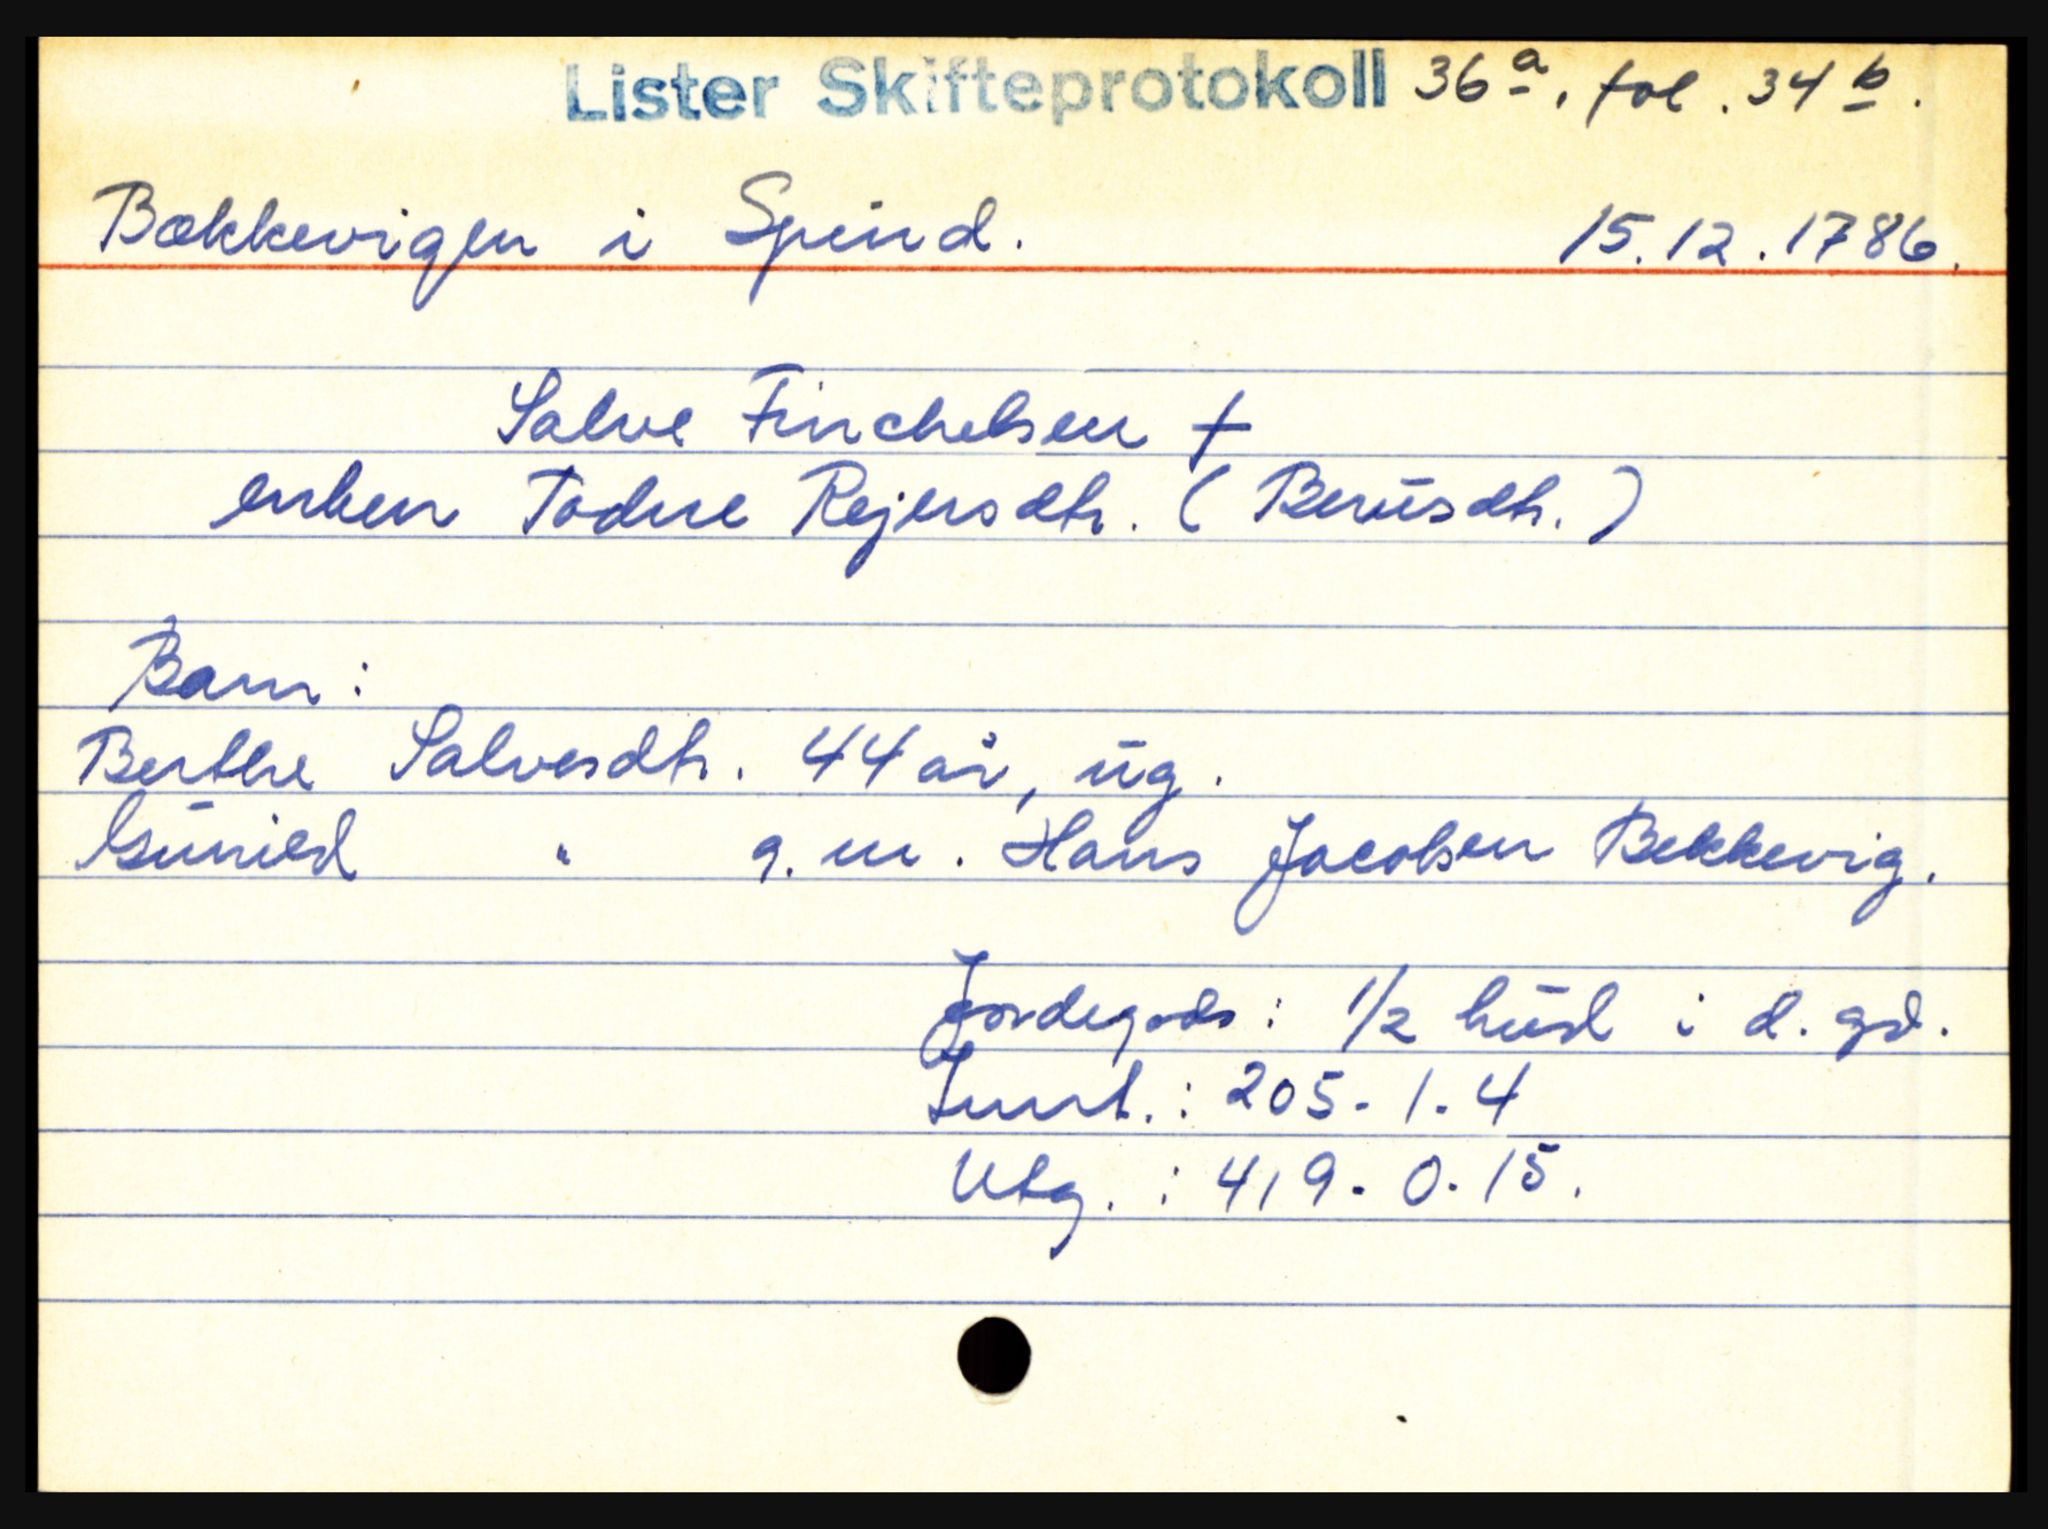 Lister Skifteprotokoll 36a, fol. 34b.
Bækkevigen i Spind. 15.12.1786.
Salve Finchelsen †
enken Todne Rejersdtr. (Berusdtr.)
Barn:
Berthe Salvesdtr. 44 år, ug.
Gunild " g.m. Hans Jacobsen Bekkevig.
Jordegods: 1/2 hud i d. gd.
Innt.: 205-1-4
Utg.: 419-0-15.